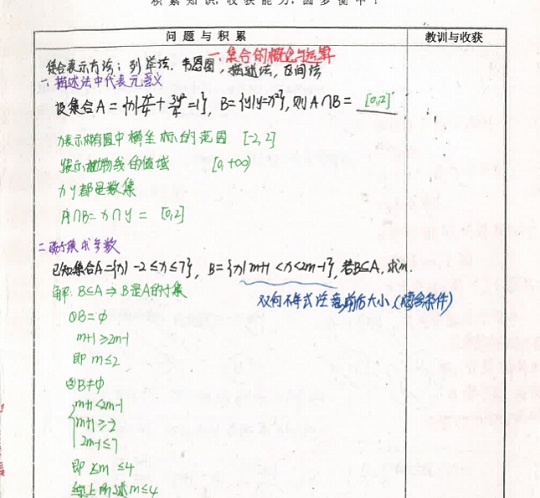 积累知识,收获能力,圆梦衡中!
问题与积累
教训与收获
一.集合的概念与运算
集合表示方法:列举法,韦恩图,描述法,区间法
一.描述法中代表元意义
设集合A={x|x²/4+3y²/4=1},B={y|y=x²},则A∩B=[0,2]
x表示椭圆中横坐标的范围 [-2,2]
y表示抛物线的值域 [0,+∞)
x y都是数集
A∩B=x∩y=[0,2]
二.子集求参数
已知集合A={x|-2≤x≤7},B={x|m+1<x<2m-1},若B⊆A,求m.
解:B⊆A⇒B是A的子集
双向不等式注意前后大小(隐含条件)
①B=φ
m+1≥2m-1
即m≤2
②B≠φ
m+1<2m-1
m+1≥-2
2m-1≤7
即2<m≤4
综上所述m≤4